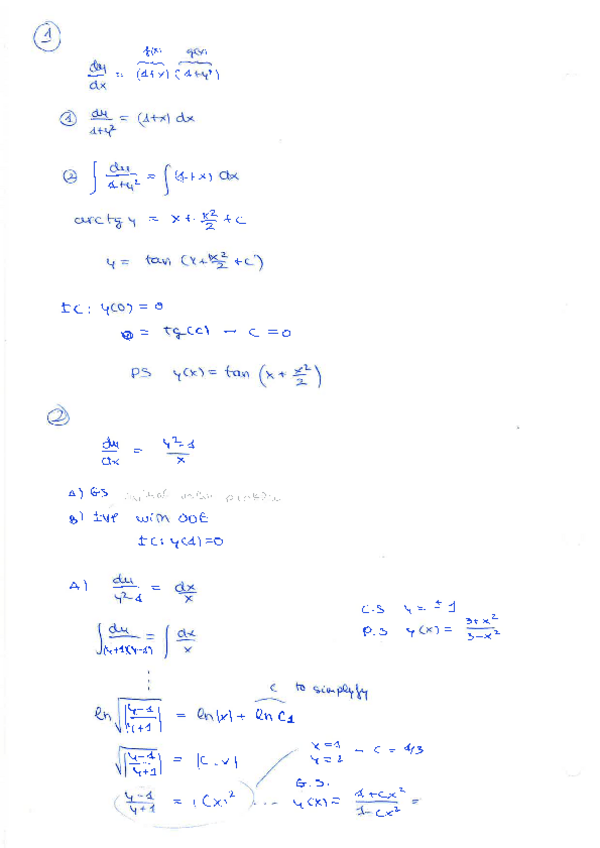 1
f(x) g(y)
dy/dx = (1+x) (1+y²)
① dy/1+y² = (1+x) dx
② ∫ dy/1+y² = ∫ (1+x) dx
arctg y = x + x²/2 + c
y = tan (x + x²/2 + c)
IC: y(0) = 0
0 = tg(c) – c = 0
PS y(x) = tan (x + x²/2)
2
dy/dx = y²-1/x
A) GS initial
B) IVP with ODE
IC: y(1) = 0
A) dy/y²-1 = dx/x
C.S y = ± 1
P.S y(x) = 3+x²/3-x²
∫ dy/(y+1)(y-1) = ∫ dx/x
⋮
c to simplyfy
ln √|y-1/y+1| = ln|x| + ln C₁
√|y-1/y+1| = |C·x|
x = 1
y = 2 – c = 1/3
G.S.
y-1/y+1 = (Cx)² ... y(x) = 1+Cx²/1-Cx² =